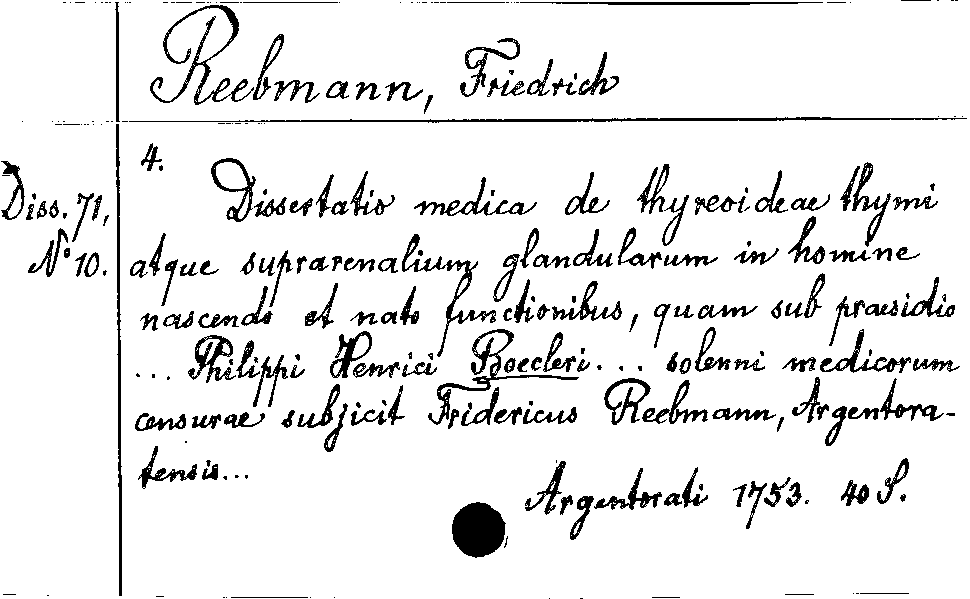 Reebmann, Friedrich
4.
Diss. 71,
No 10.
Dissertatio medica de thyreoideae thymi
atque suprarenalium glandularum in homine
nascendo et nato functionibus, quam sub praesidio
... Philippi Henrici Boecleri ... solenni medicorum
censurae subjicit Fridericus Reebmann, Argentora-
tensis...
Argentorati 1753. 40 S.